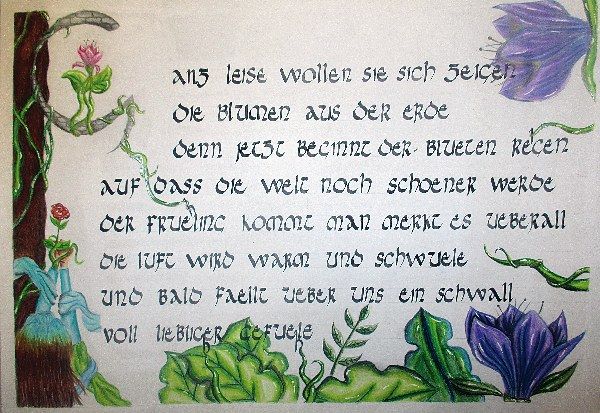 Ganz leise wollen sie sich zeigen
die Blumen aus der Erde
denn jetzt beginnt der Blueten Regen
auf dass die Welt noch schoener werde
der Frueling kommt man merkt es ueberall
die Luft wird warm und schwuele
und bald faellt ueber uns ein Schwall
voll liebliger Gefuele